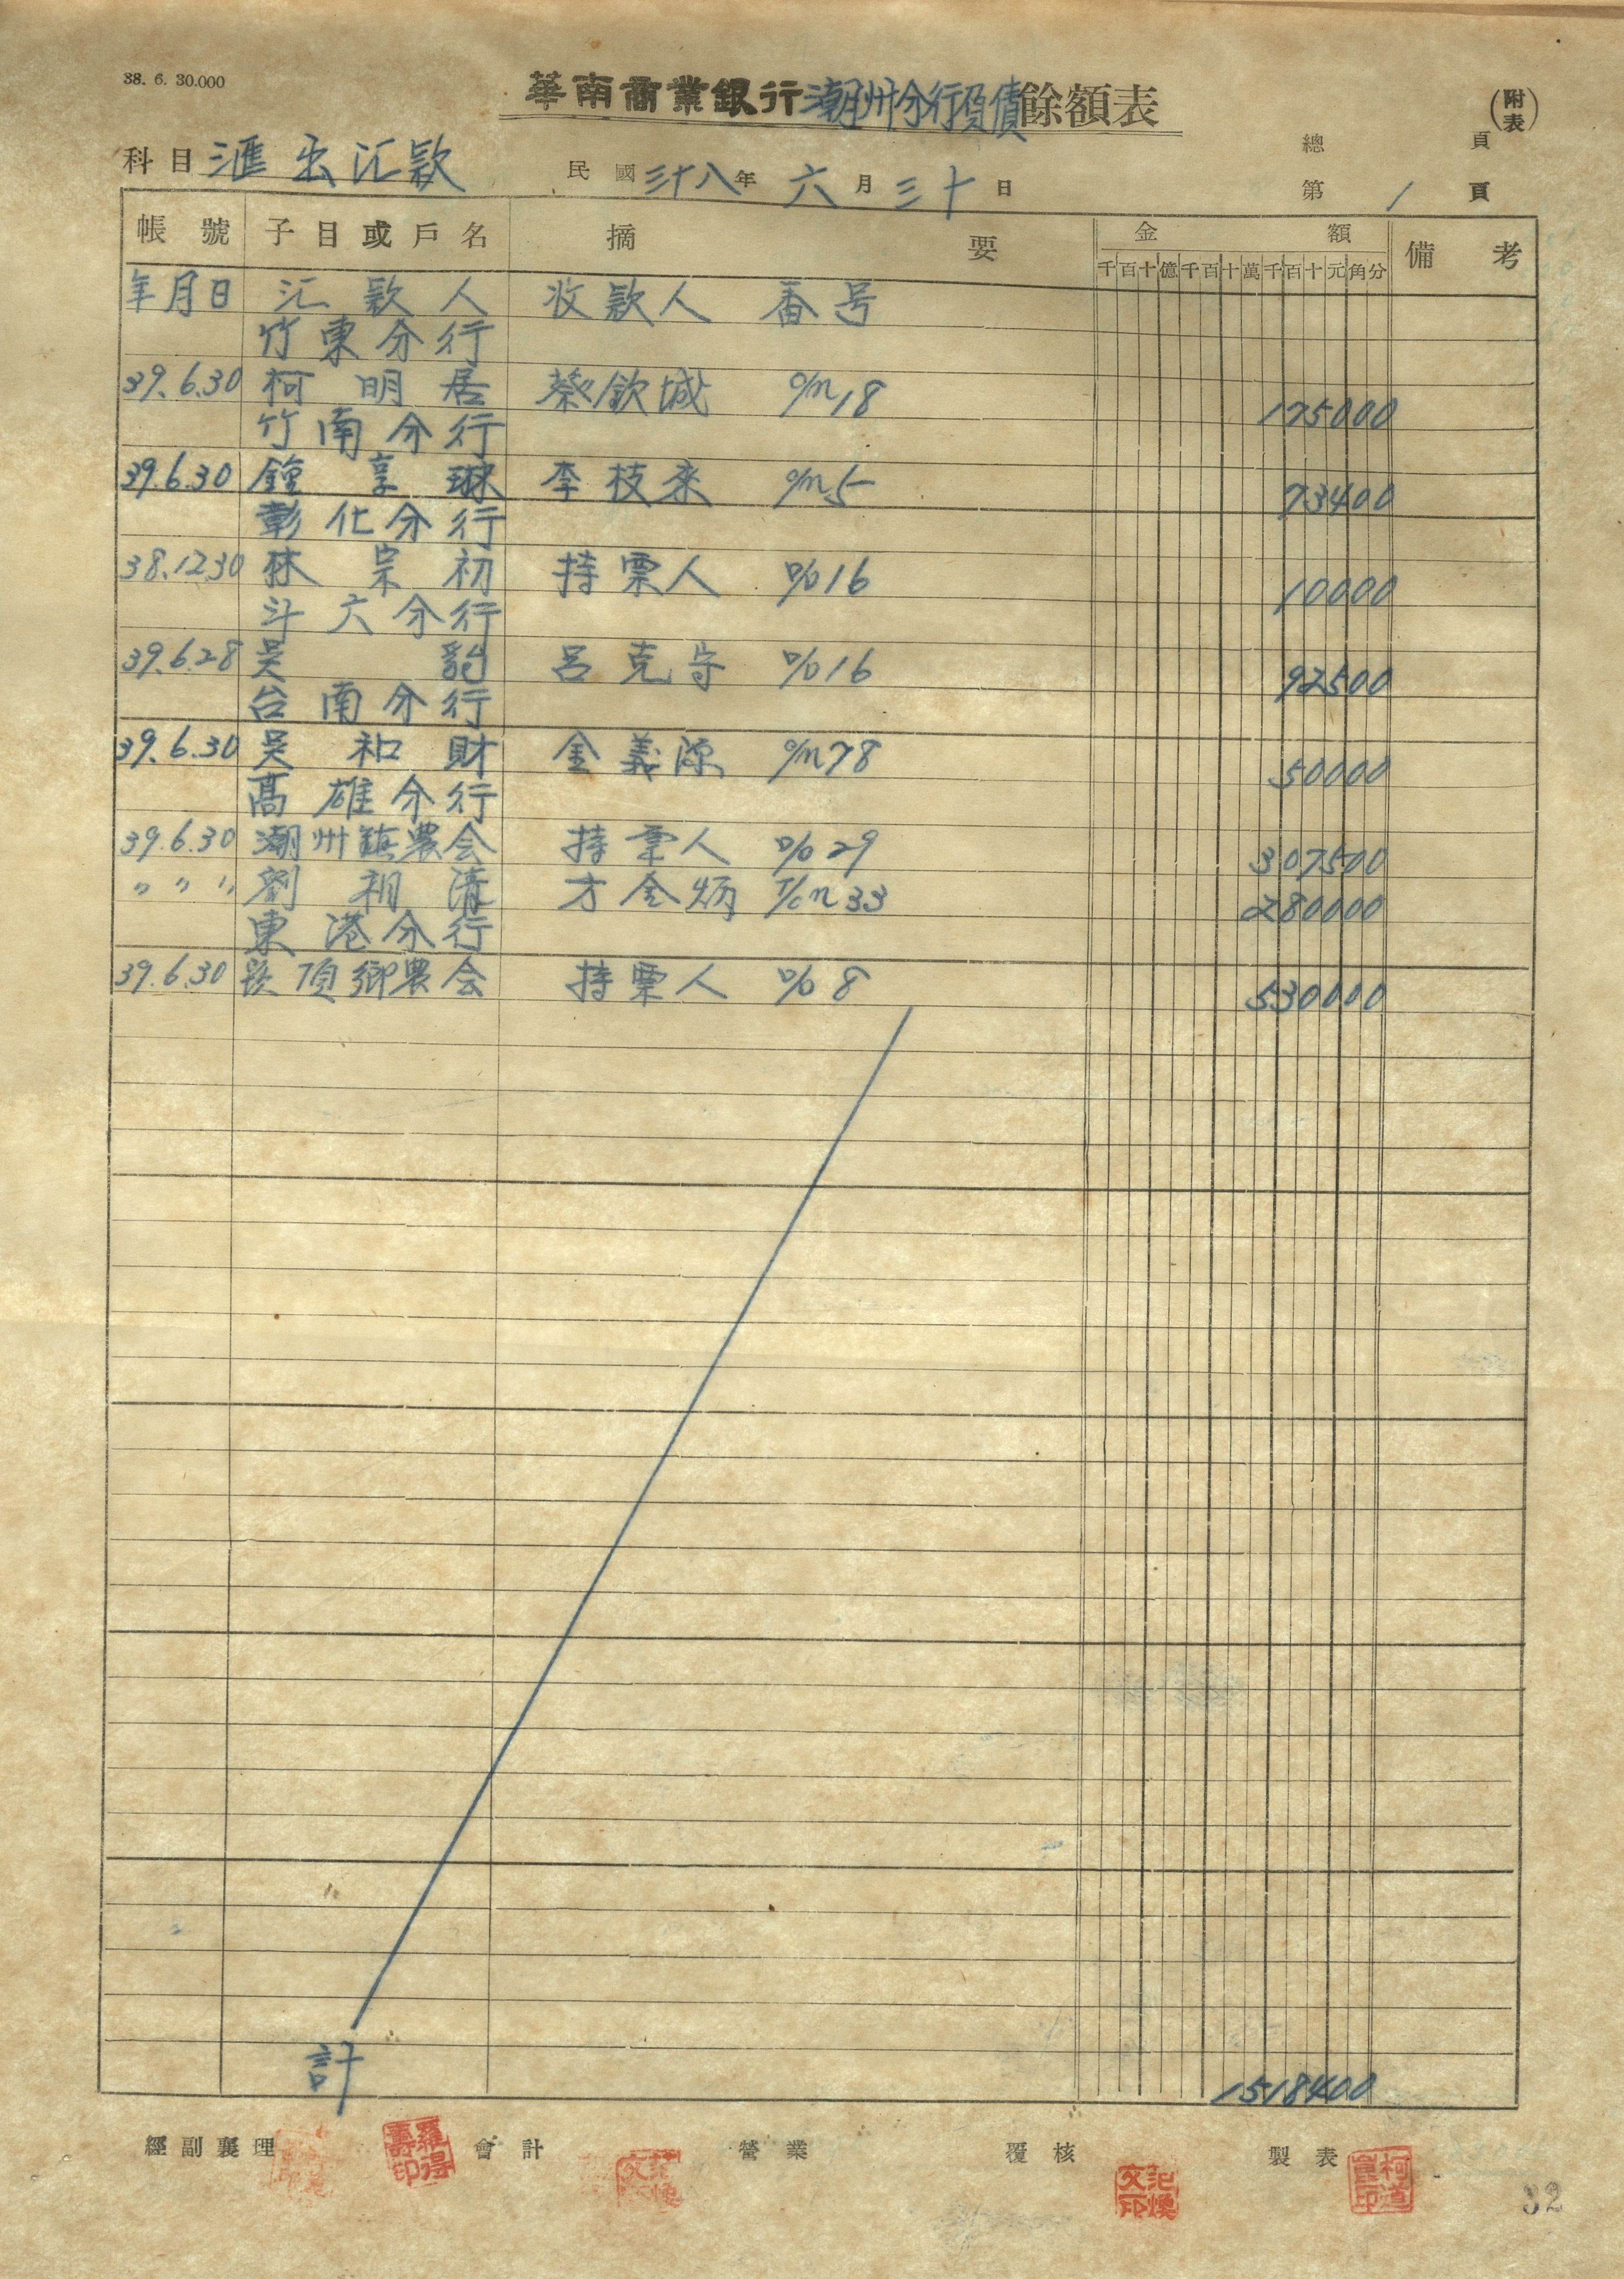 38. 6. 30.000
華南商業銀行潮州分行負債餘額表
(附表)
科目 滙出汇款
民國三十八年 六月三十日
總 頁
第 1 頁
帳號 子目或戶名 摘要 金額 備考
千百十億千百十萬千百十元角分
年月日 汇款人 收款人 番号
竹東分行
39.6.30 柯明居 蔡欽城 O/M 18 175000
竹南分行
39.6.30 鐘享琳 李枝来 O/M 5 73400
彰化分行
38.12.30 林宗初 持票人 D/D 16 10000
斗六分行
39.6.28 吴 呂克守 D/D 16 92500
台南分行
39.6.30 吴和財 金義源 O/M 78 50000
高雄分行
39.6.30 潮州鎮農会 持票人 D/D 29 307500
〃 〃 〃 劉相清 才金炳 33 280000
東港分行
39.6.30 崁頂鄉農会 持票人 D/D 8 530000
計 1518400
經副襄理 會計 營業 覆核 製表
羅得壽印
32